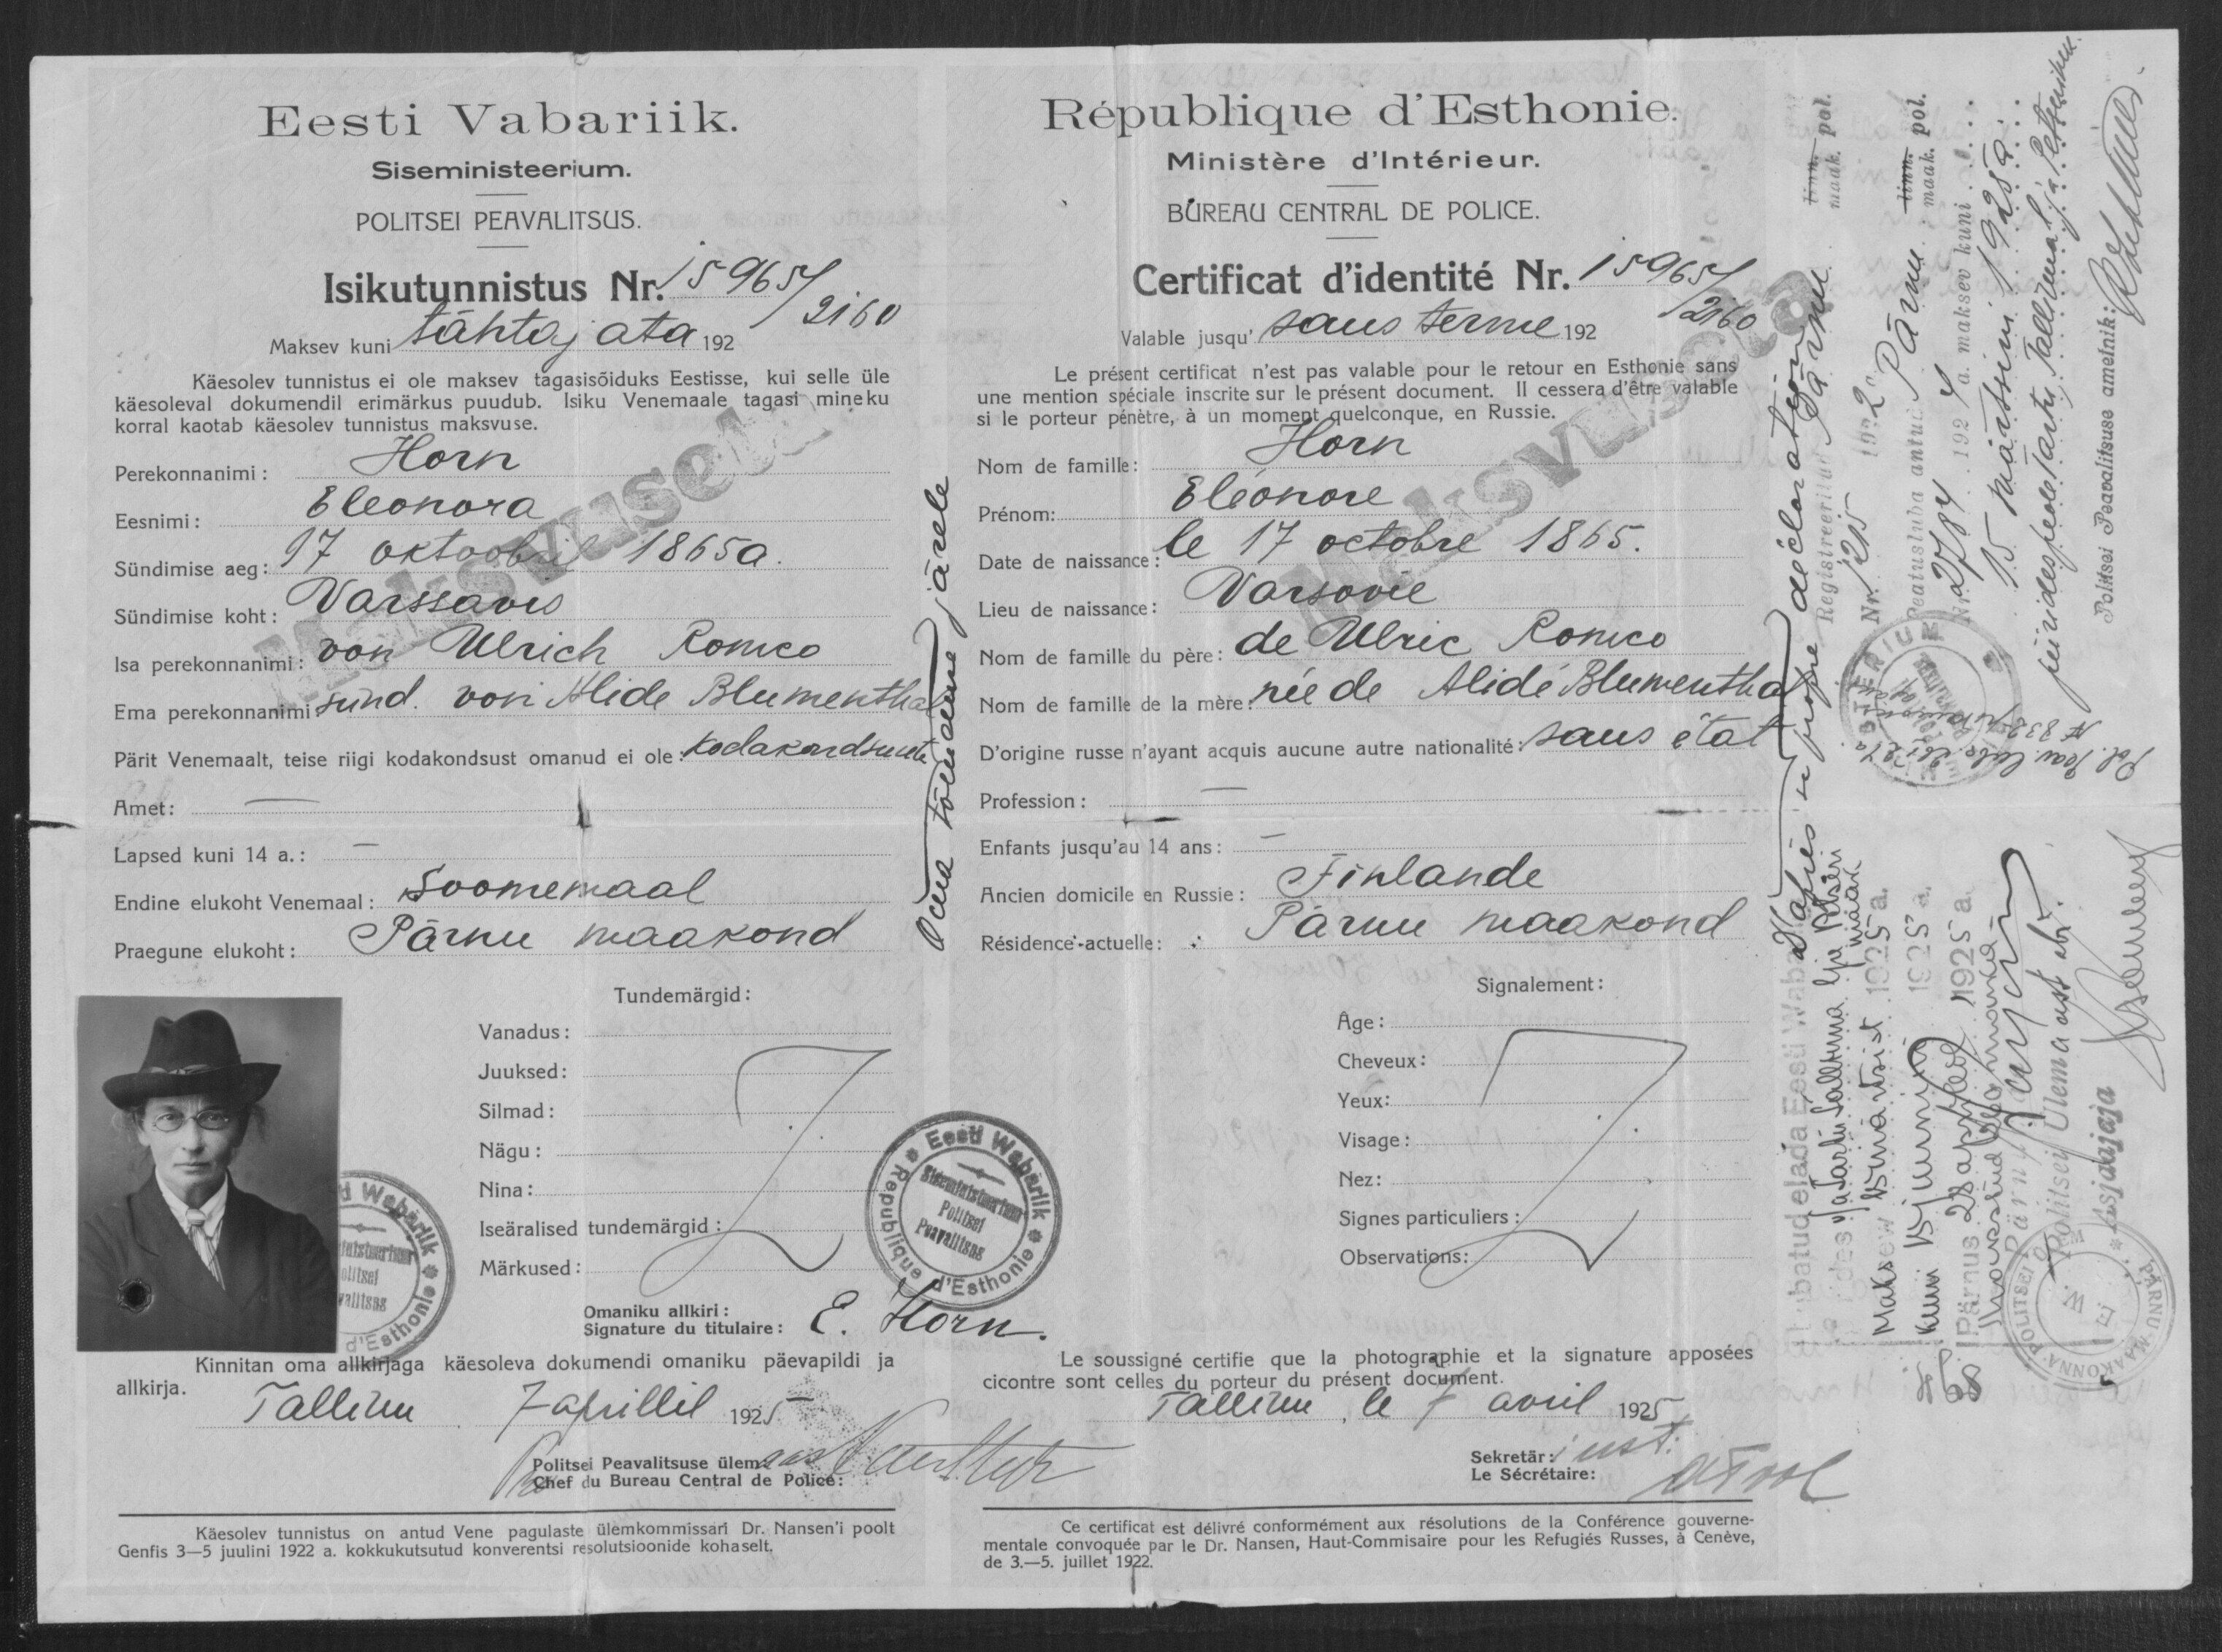 Eesti Vabariik.
Siseministeerium.
POLITSEI PEAVALITSUS.
Isikutunnistus Nr. 15965/2160
Maksev kuni tähtajata 192
Käesolev tunnistus ei ole maksev tagasisõiduks Eestisse, kui selle üle
käesoleval dokumendil erimärkus puudub. Isiku Venemaale tagasi mineku
korral kaotab käesolev tunnistus maksvuse.
Perekonnanimi: Horn
Eesnimi: Eleonora
Sündimise aeg: 17 oktoobril 1865 a.
Sündimise koht: Varssavis
Isa perekonnanimi: von Ulrich Romeo
Ema perekonnanimi sünd. von Alide Blumenthal
Pärit Venemaalt, teise riigi kodakondsust omanud ei ole: kodakondsuseta
Amet: —
Lapsed kuni 14 a.: —
Endine elukoht Venemaal: Soomemaal
Praegune elukoht: Pärnu maakond
Maksvuseta
Oma tõendame järele
Tundemärgid:
Vanadus:
Juuksed:
Silmad:
Nägu:
Nina:
Iseäralised tundemärgid:
Märkused:
Eesti Wabariik
Siseministeerium
Politsei
Peavalitsus
Republique d'Esthonie
Omaniku allkiri:
Signature du titulaire: E. Horn.
Kinnitan oma allkirjaga käesoleva dokumendi omaniku päevapildi ja
allkirja.
Tallinn 7 aprillil 1925
Politsei Peavalitsuse ülem
Chef du Bureau Central de Police:
Käesolev tunnistus on antud Vene pagulaste ülemkommissari Dr. Nansen'i poolt
Genfis 3—5 juulini 1922 a. kokkukutsutud konverentsi resolutsioonide kohaselt.
République d'Esthonie.
Ministère d'Intérieur.
BUREAU CENTRAL DE POLICE.
Certificat d'identité Nr. 15965/2160
Valable jusqu' sans terme 192
Le présent certificat n'est pas valable pour le retour en Esthonie sans
une mention spéciale inscrite sur le présent document. Il cessera d'être valable
si le porteur pénètre, à un moment quelconque, en Russie.
Nom de famille: Horn
Prénom: Eléonore
Date de naissance: le 17 octobre 1865.
Lieu de naissance: Varsovie
Nom de famille du père: de Ulric Romeo
Nom de famille de la mère: née de Alidé Blumenthal
D'origine russe n'ayant acquis aucune autre nationalité: sans état
Profession: —
Enfants jusqu'au 14 ans: —
Ancien domicile en Russie: Finlande
Résidence actuelle: Pärnu maakond
Maksvuseta
D'après sa propre déclaration
Signalement:
Âge:
Cheveux:
Yeux:
Visage:
Nez:
Signes particuliers:
Observations:
Le soussigné certifie que la photographie et la signature apposées
cicontre sont celles du porteur du présent document.
Tallinn, le 7 avril 1925
Sekretär:
Le Sécrétaire:
Ce certificat est délivré conformément aux résolutions de la Conférence gouverne-
mentale convoquée par le Dr. Nansen, Haut-Commisaire pour les Refugiés Russes, à Cenève,
de 3.—5. juillet 1922.
Registreeritud Pärnu linn. maak. pol.
Nr. 1215 192
Peatusluba antud Pärnu linn. maak. pol.
Nr. 2784 192 a. maksev kuni
15 märtsini 1925 a.
Politsei Peavalitsuse ametnik:
Lubatud elada Eesti Waba
Maksew 1925 a.
kuni 15 juunini 1925 a.
Pärnus 1925 a.
Pärnu
Politsei Ülema abi.
Asjaajaja
PÄRNU-MAAKONNA POLITSEI
E. W.